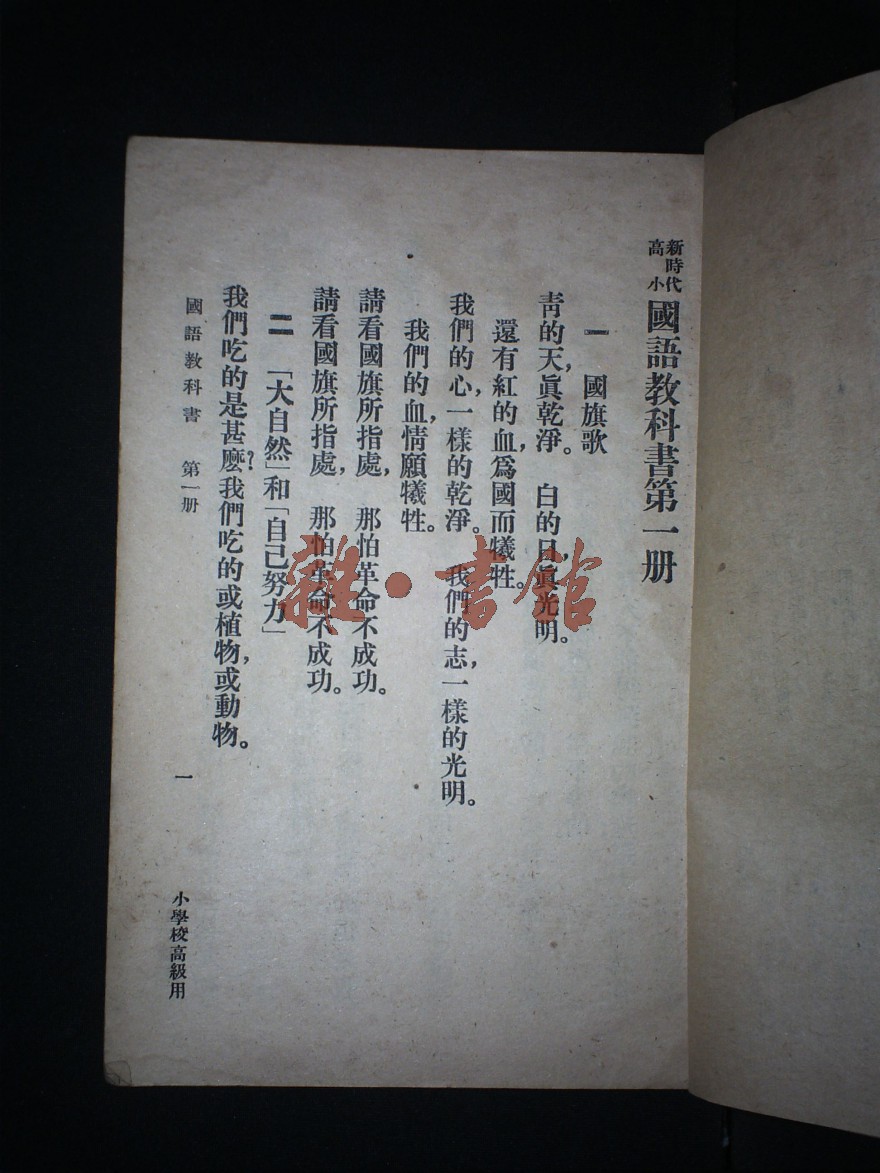 新時代高小 國語教科書第一册
一 國旗歌
靑的天,眞乾淨。 白的日,眞光明。
還有紅的血,爲國而犧牲。
我們的心,一樣的乾淨。 我們的志,一樣的光明。
我們的血,情願犧牲。
請看國旗所指處, 那怕革命不成功。
請看國旗所指處, 那怕革命不成功。
二 「大自然」和「自己努力」
我們吃的是甚麽?我們吃的或植物,或動物。
國語教科書 第一册
一
小學校高級用
雜·書館